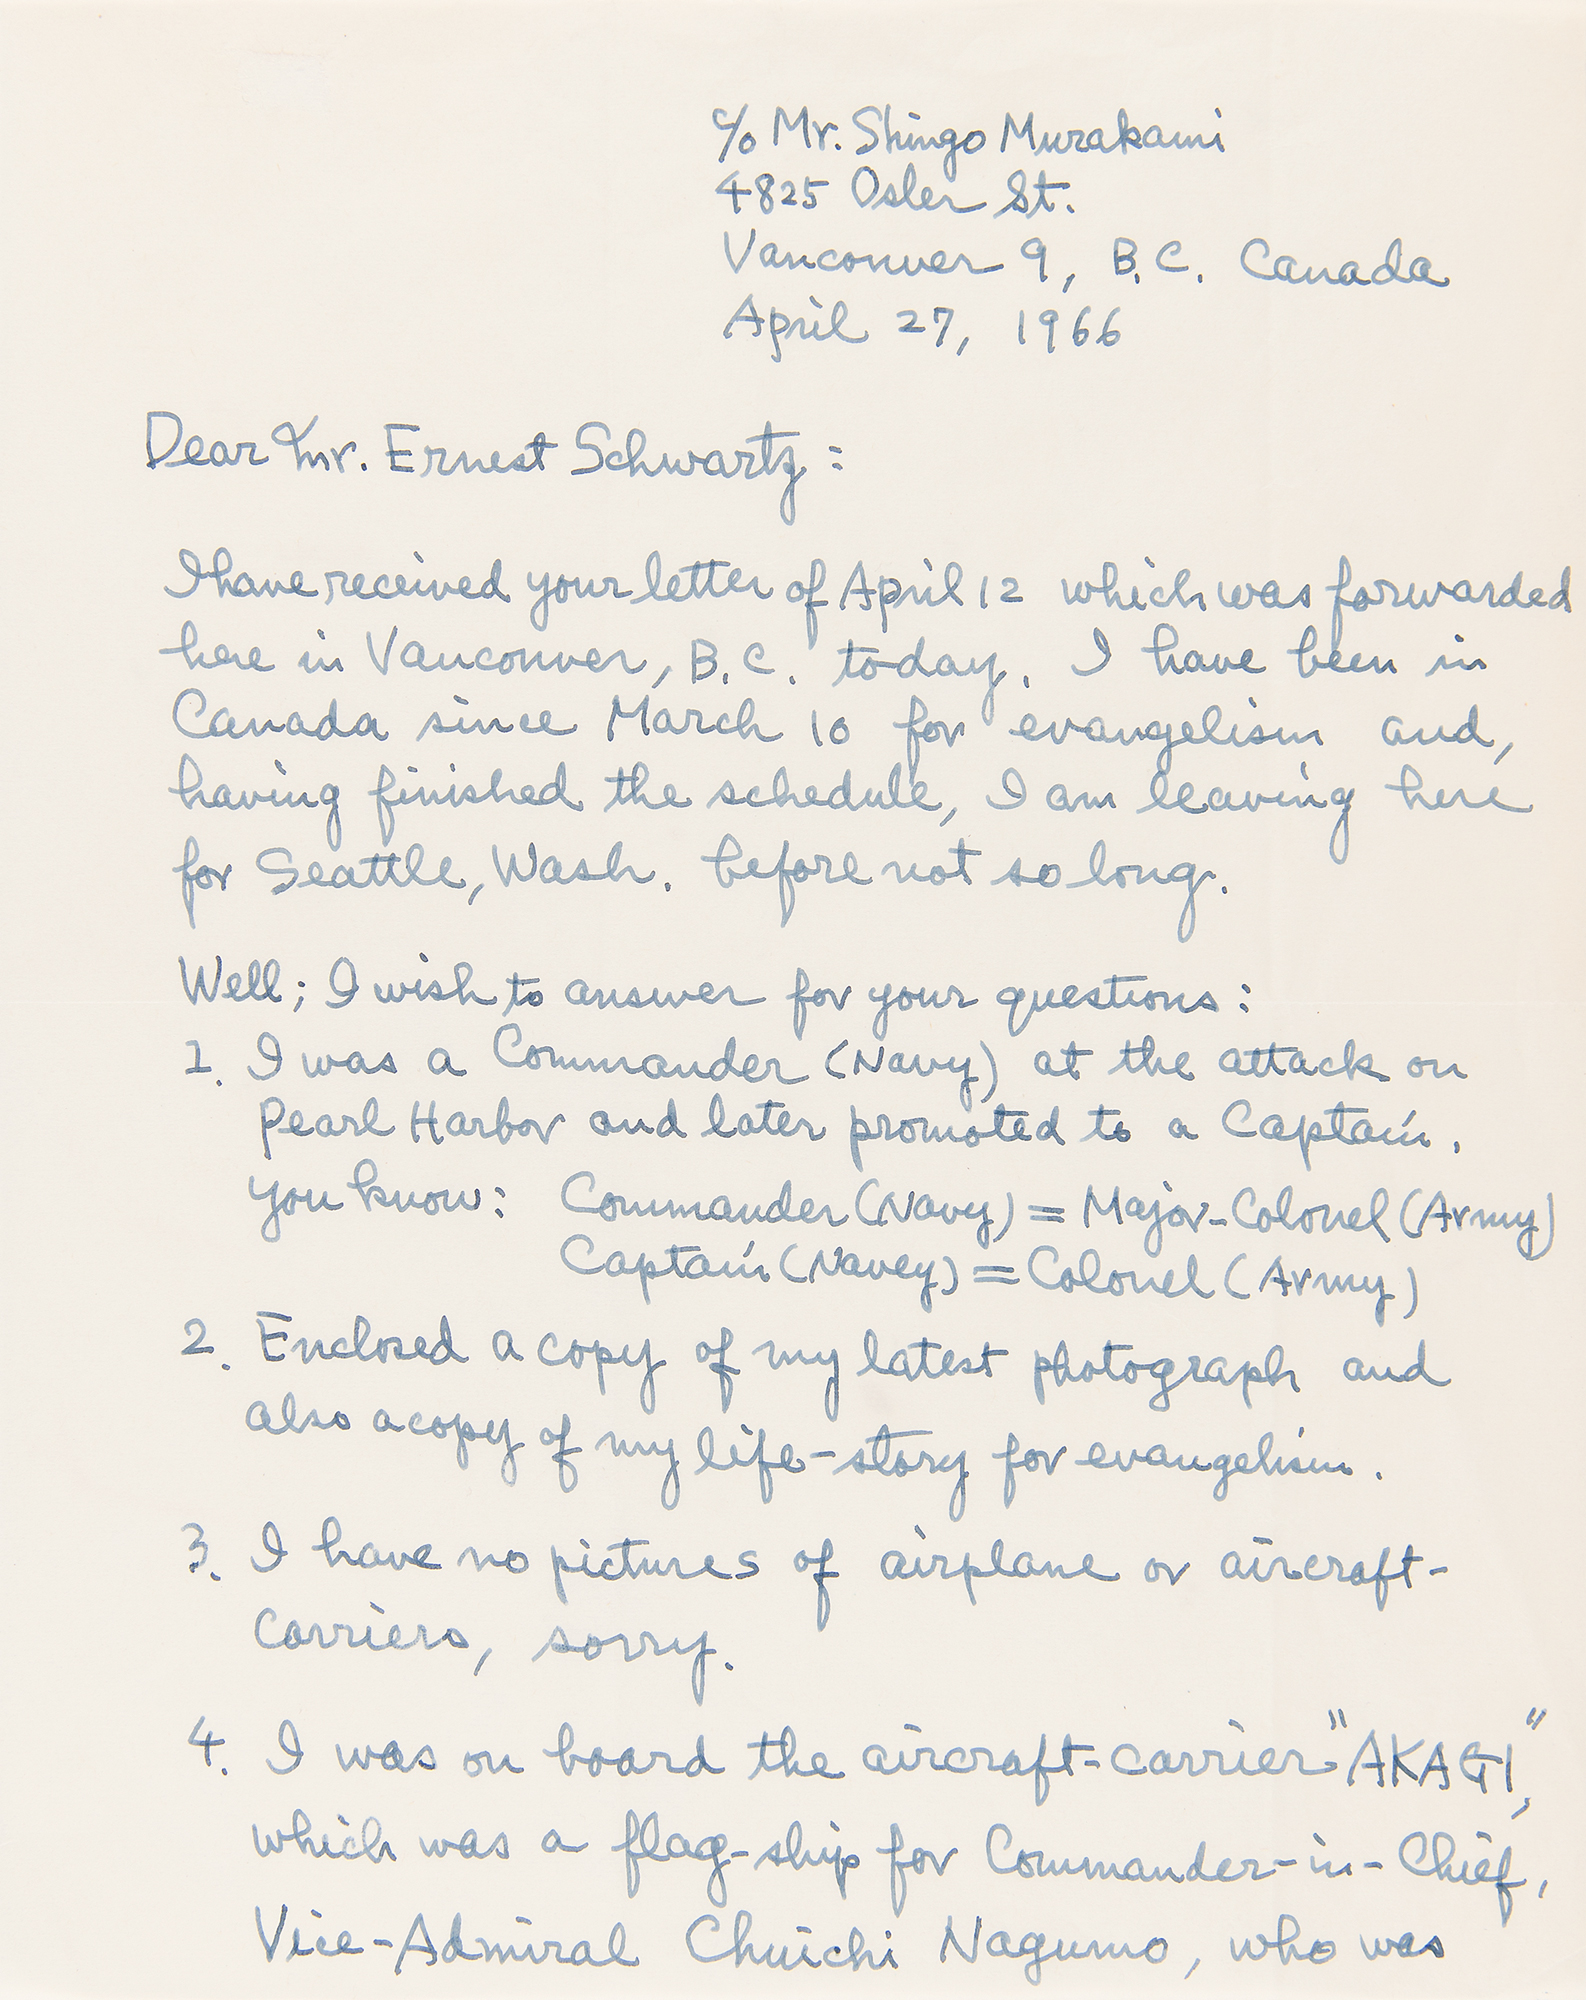 c/o Mr. Shingo Murakami
4825 Osler St.
Vancouver 9, B.C. Canada
April 27, 1966
Dear Mr. Ernest Schwartz:
I have received your letter of April 12 which was forwarded
here in Vancouver, B.C. today. I have been in
Canada since March 10 for evangelism and,
having finished the schedule, I am leaving here
for Seattle, Wash. before not so long.
Well; I wish to answer for your questions:
1. I was a Commander (Navy) at the attack on
Pearl Harbor and later promoted to a Captain.
You know: Commander (Navy) = Major-Colonel (Army)
Captain (Navey) = Colonel (Army)
2. Enclosed a copy of my latest photograph and
also a copy of my life-story for evangelism.
3. I have no pictures of airplane or aircraft-
carriers, sorry.
4. I was on board the aircraft-carrier "AKAGI",
which was a flag-ship for Commander-in-Chief,
Vice-Admiral Chuichi Nagumo, who was